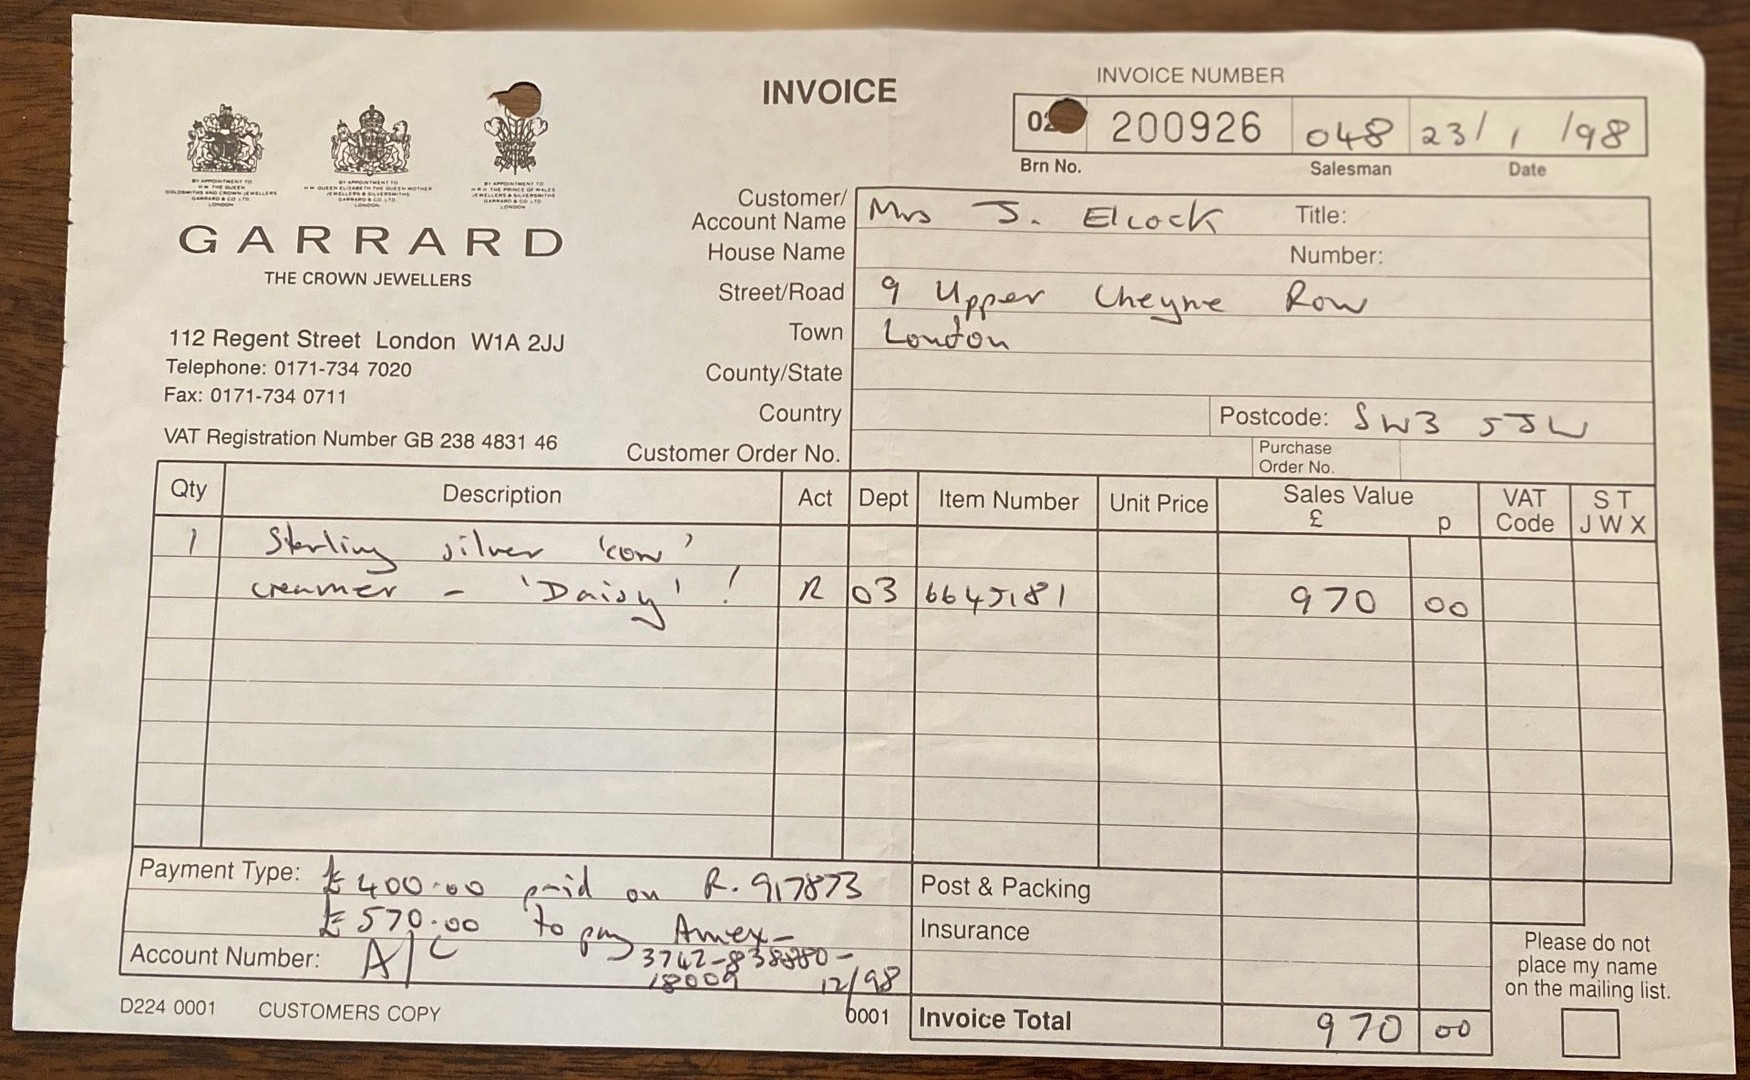 INVOICE
INVOICE NUMBER
200926 048 23/1/98
Brn No. Salesman Date
BY APPOINTMENT TO
H M THE QUEEN
GOLDSMITHS AND CROWN JEWELLERS
GARRARD & CO LTD
LONDON
BY APPOINTMENT TO
H M QUEEN ELIZABETH THE QUEEN MOTHER
JEWELLERS & SILVERSMITHS
GARRARD & CO LTD
LONDON
BY APPOINTMENT TO
H R H THE PRINCE OF WALES
JEWELLERS & SILVERSMITHS
GARRARD & CO LTD
LONDON
GARRARD
THE CROWN JEWELLERS
112 Regent Street London W1A 2JJ
Telephone: 0171-734 7020
Fax: 0171-734 0711
VAT Registration Number GB 238 4831 46
Customer/
Account Name Mrs J. Elcock Title:
House Name Number:
Street/Road 9 Upper Cheyne Row
Town London
County/State
Country Postcode: SW3 5JW
Customer Order No. Purchase
Order No.
Qty Description Act Dept Item Number Unit Price Sales Value £ p VAT Code S T J W X
1 Sterling silver 'cow'
creamer - 'Daisy' ! R 03 6645181 970 00
Payment Type: £400.00 paid on R. 917873
£570.00 to pay Amex-
Account Number: A/C
12/98
Post & Packing
Insurance
Invoice Total 970 00
Please do not
place my name
on the mailing list.
D224 0001 CUSTOMERS COPY 0001